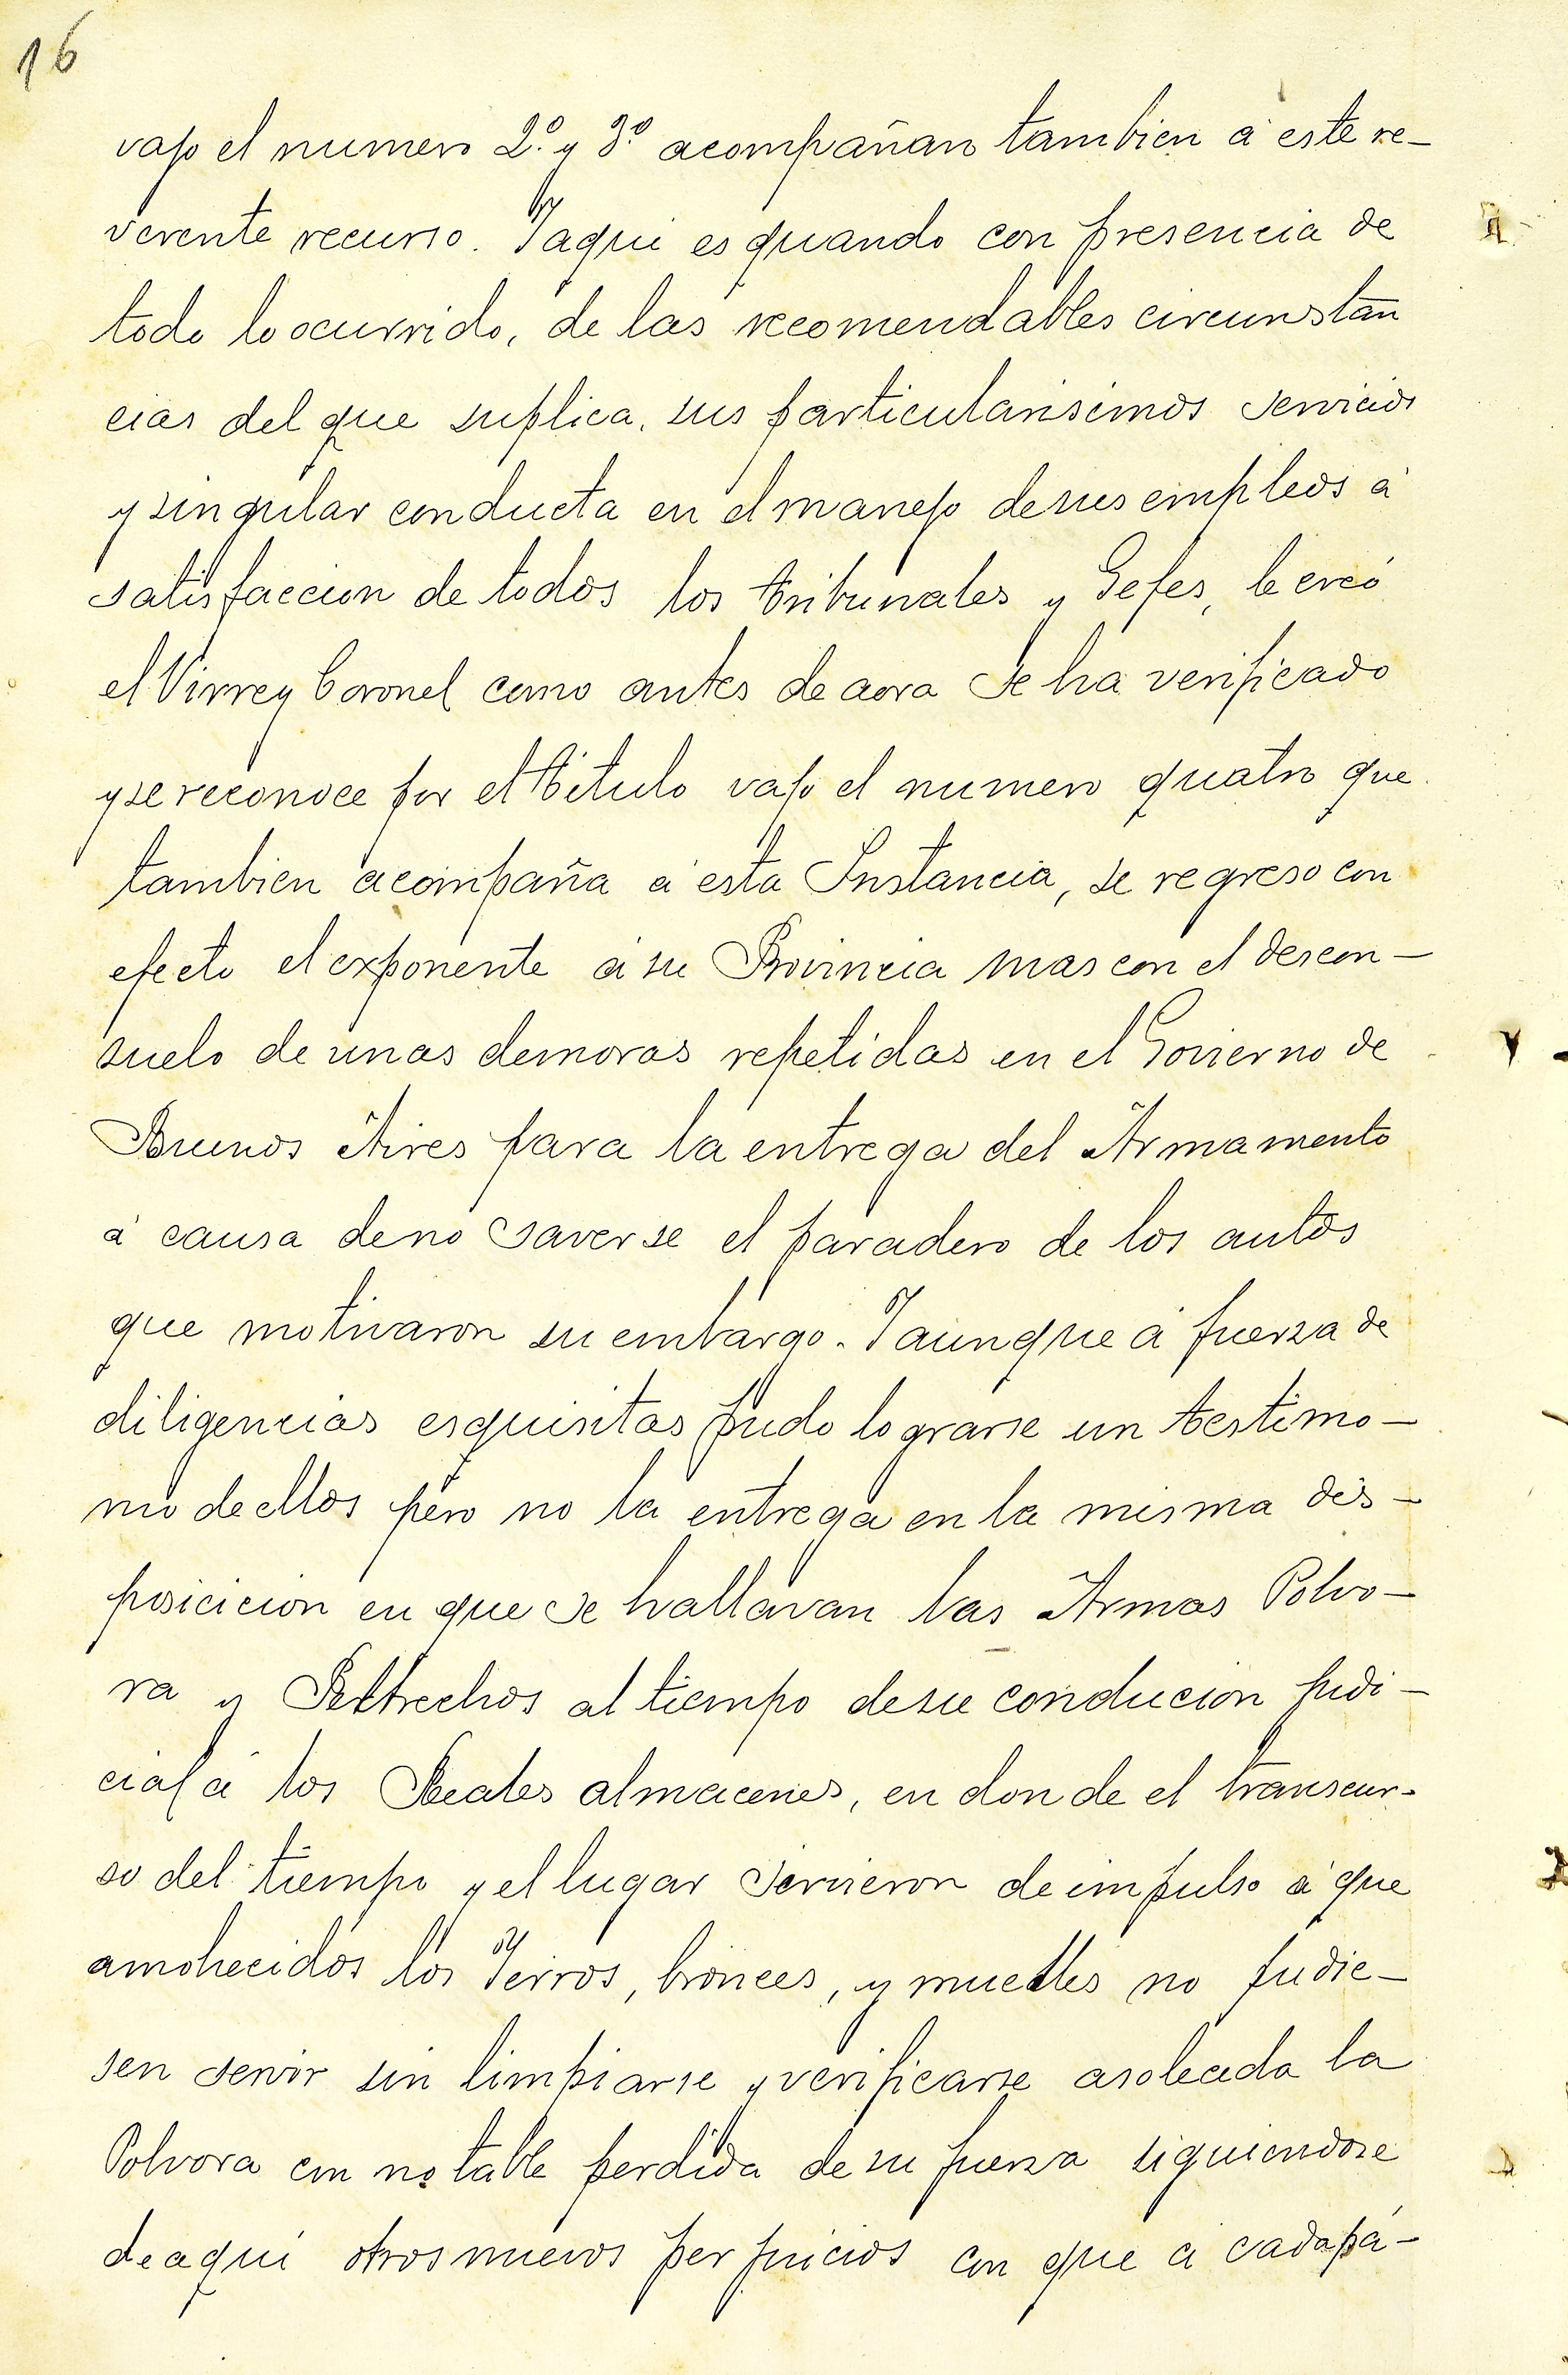 16
vajo el numero 2º. y 3º. acompañan tambien á este re-
verente recurso. Yaqui es quando con presencia de
todo lo ocurrido, de las recomendables circunstan
cias del que suplica, sus particularisimos servicios
y singular conducta en el manejo de sus empleos á
satisfaccion de todos los tribunales y Gefes, le creó
el Virrey Coronel como antes de aora se ha verificado
y se reconoce por el titulo vajo el numero quatro que
tambien acompaña á esta Instancia, se regreso con
efecto el exponente á su Provincia mas con el descon-
suelo de unas demoras repetidas en el Govierno de
Buenos Aires para la entrega del Armamento
á causa de no saverse el paradero de los autos
que motivaron su embargo. Yaunque á fuerza de
diligencias esquisitas pudo lograrse un testimo-
nio de ellos pero no la entrega en la misma dis-
posicicion en que se hallavan las Armas Polvo-
ra y Peltrechos al tiempo de su conducion judi-
cial á los Reales almacenes, en donde el transcur-
so del tiempo y el lugar sirvieron de impulso á que
amohecidos los Yerros, bronces, y muelles no pudie-
sen servir sin limpiarse y verificarse asoleada la
Polvora con notable perdida de su fuerza siguiendose
de aqui otros nuevos perjuicios con que á cada pá-